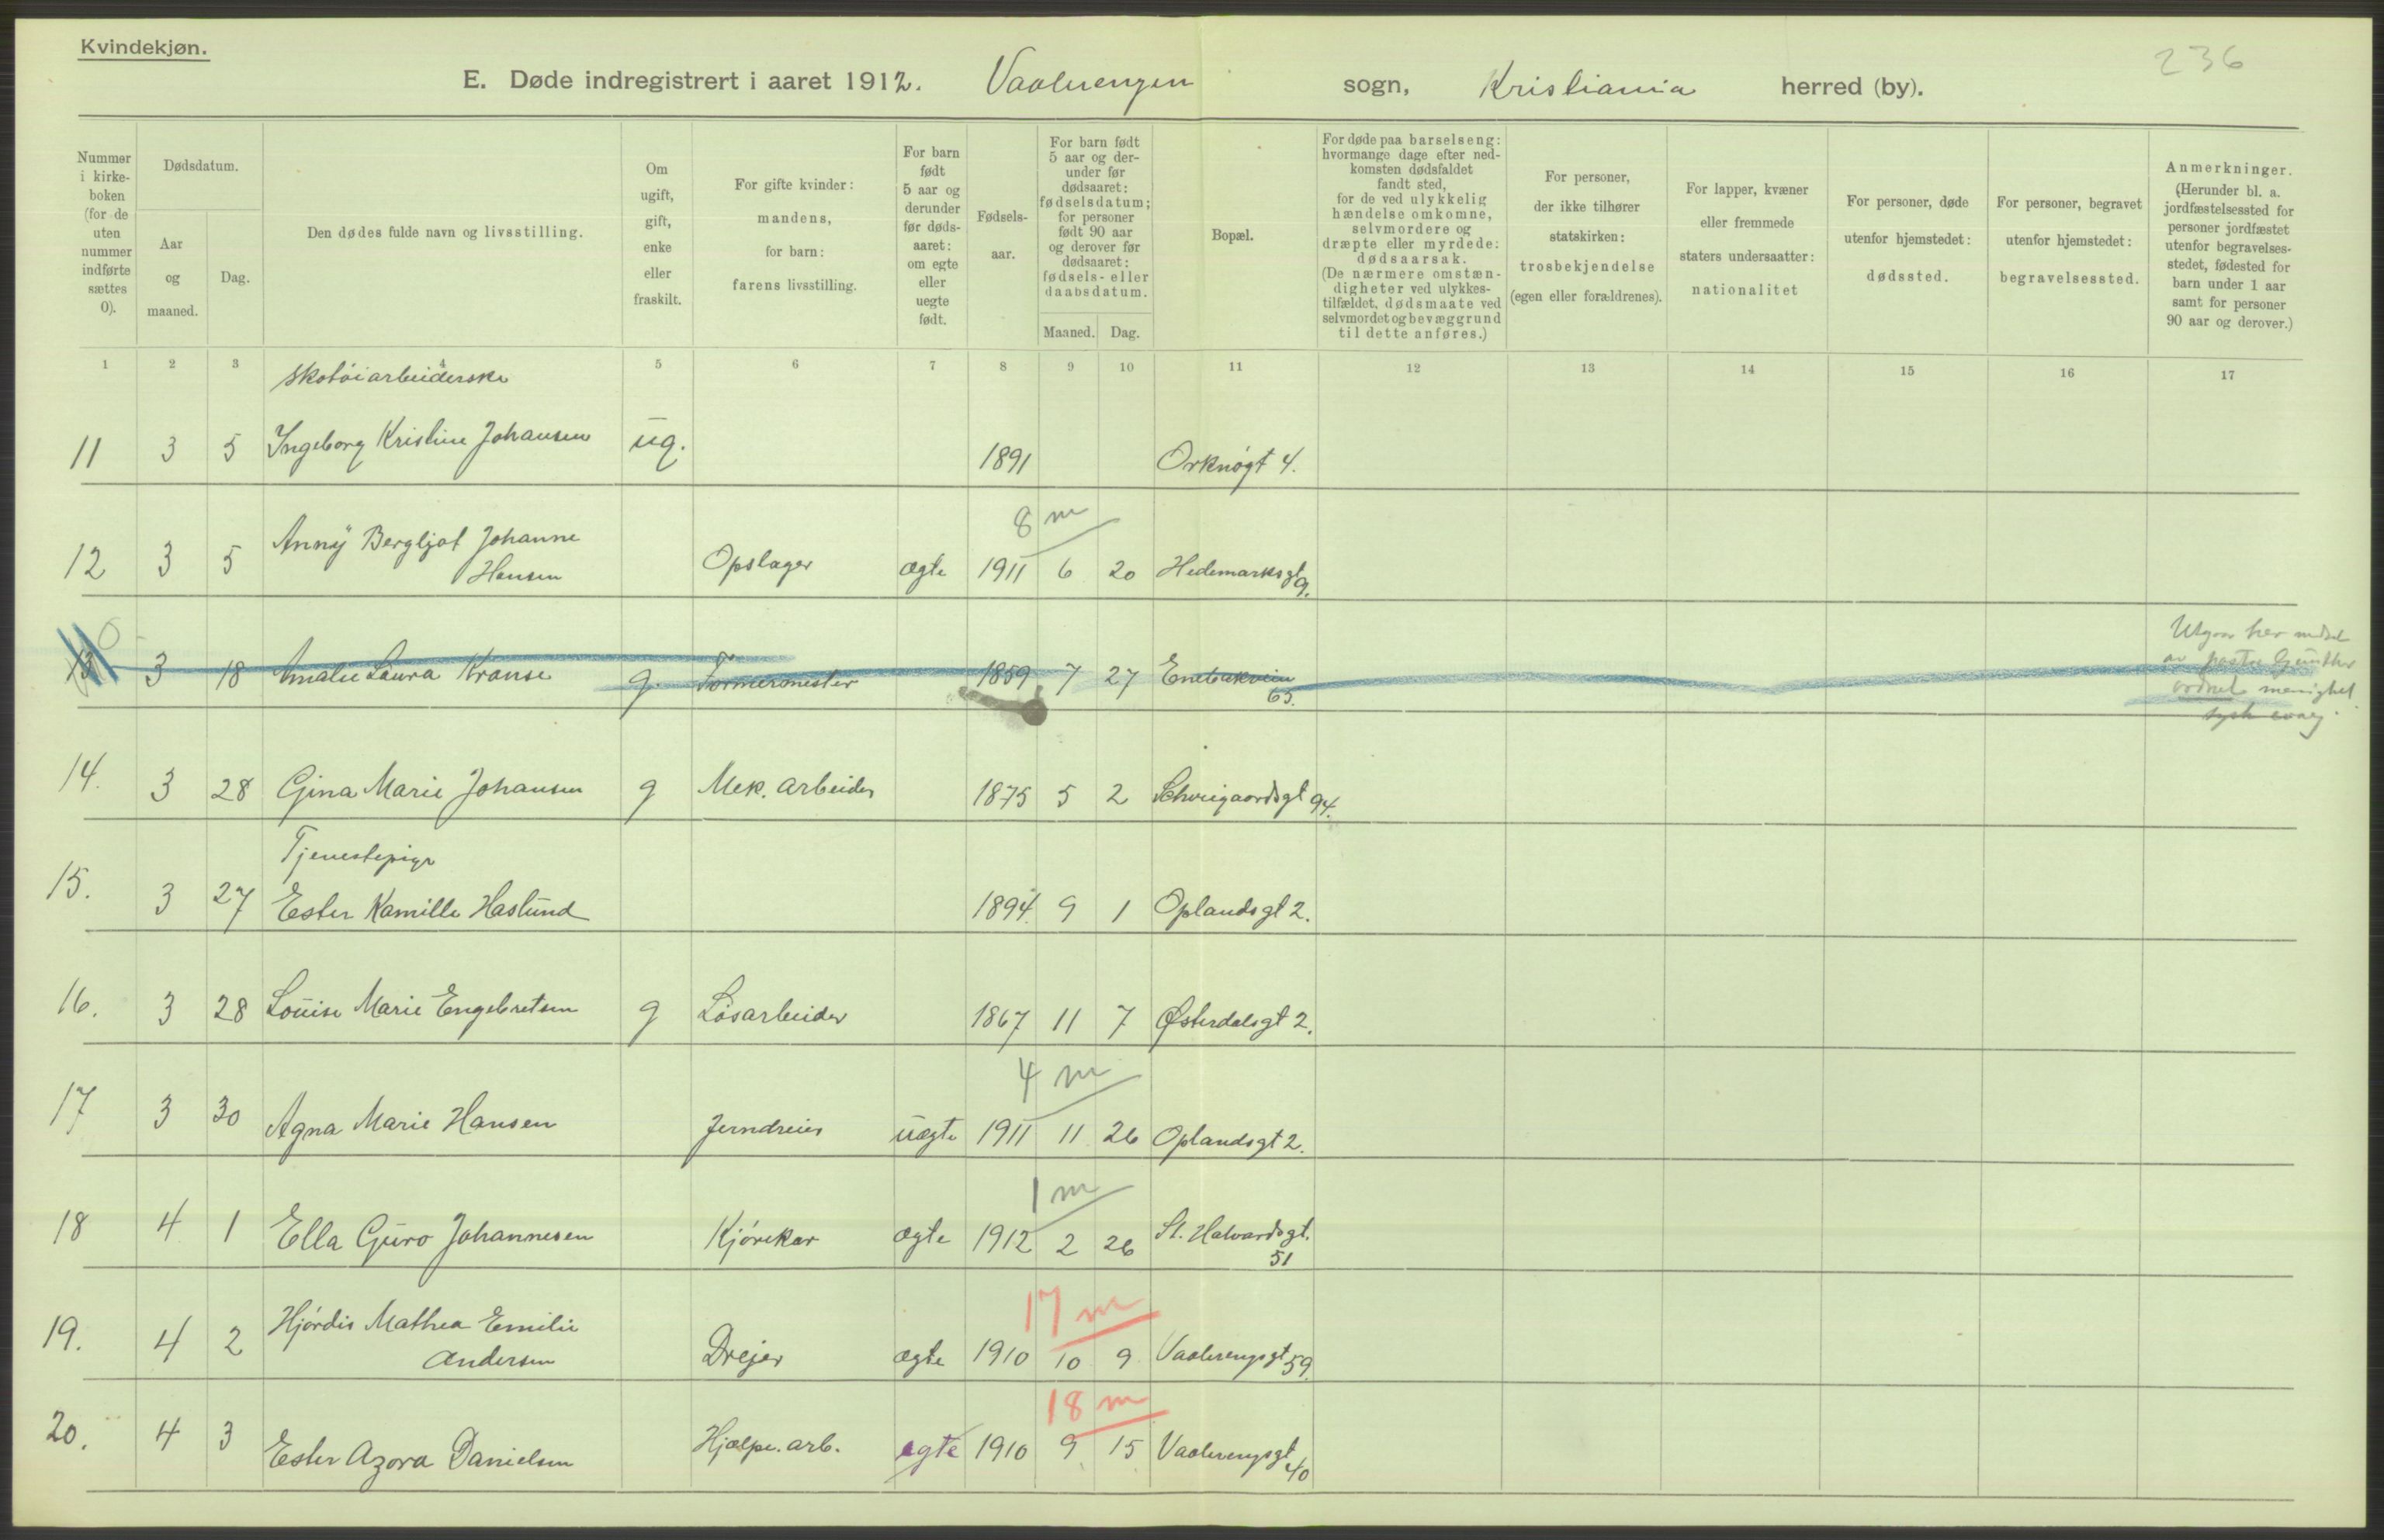 Kvindekjøn.
236
E. Døde indregistrert i aaret 1912. Vaalerengen sogn, Kristiania herred (by).
Nummer i kirke-boken (for de uten nummer indførte sættes 0).
Dødsdatum.
Aar og maaned.
Dag.
Den dødes fulde navn og livsstilling.
Om ugift, gift, enke eller fraskilt.
For gifte kvinder: mandens, for barn: farens livsstilling.
For barn født 5 aar og derunder før døds-aaret: om egte eller uegte født.
Fødsels-aar.
For barn født 5 aar og der-under før dødsaaret: fødselsdatum; for personer født 90 aar og derover før dødsaaret: fødsels- eller daabsdatum.
Maaned. Dag.
Bopæl.
For døde paa barselseng: hvormange dage efter ned-komsten dødsfaldet fandt sted, for de ved ulykkelig hændelse omkomne, selvmordere og dræpte eller myrdede: dødsaarsak. (De nærmere omstæn-digheter ved ulykkes-tilfældet, dødsmaate ved selvmordet og bevæggrund til dette anføres.)
For personer, der ikke tilhører statskirken: trosbekjendelse (egen eller forældrenes).
For lapper, kvæner eller fremmede staters undersaatter: nationalitet
For personer, døde utenfor hjemstedet: dødssted.
For personer, begravet utenfor hjemstedet: begravelsessted.
Anmerkninger. (Herunder bl. a. jordfæstelsessted for personer jordfæstet utenfor begravelses-stedet, fødested for barn under 1 aar samt for personer 90 aar og derover.)
1 2 3 4 5 6 7 8 9 10 11 12 13 14 15 16 17
Skotøiarbeiderske
11 3 5 Ingeborg Kristine Johansen ug. 1891 Orknøgt 4.
8 m
12 3 5 Anny Bergljot Johanne
Hansen Opslager ægte 1911 6 20 Hedemarksgt 9.
13 0 3 18 Amalie Laura Krause g. Formermester 1859 7 27 Enebakvein
65.
Utgaar her
av pastor Günther
menighet
14. 3 28 Gina Marie Johansen g Mek. arbeider 1875 5 2 Schweigaardsgt 94.
Tjenestepige
15. 3 27 Ester Kamille Haslund 1894 9 1 Oplandsgt 2.
16. 3 28 Louise Marie Engebretsen g Løsarbeider 1867 11 7 Østerdalsgt 2.
4 m
17 3 30 Agna Marie Hansen Jerndreier uægte 1911 11 26 Oplandsgt 2.
1 m
18 4 1 Ella Guro Johannesen Kjørekar ægte 1912 2 26 St. Halvardsgt.
51
17 m
19. 4 2 Hjørdis Mathea Emilie
Andersen Drejer ægte 1910 10 9 Vaalerengsgt 59.
18 m
20. 4 3 Ester Azora Danielsen Hjælpe. arb. egte 1910 9 15 Vaalerengsgt 40